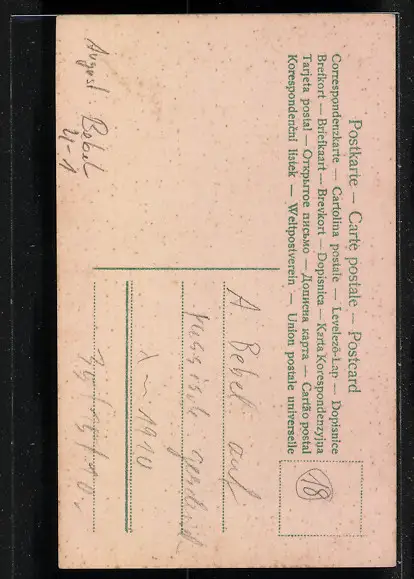 Postkarte — Carte postale — Postcard
Correspondenzkarte — Cartolina postale — Levelező-Lap — Dopisnice
Brefkort — Briefkaart — Brevkort — Dopisnica — Karta Korespondenzyjna
Tarjeta postal — Открытое письмо — Дописна карта — Cartão postal
Korespondenční lístek — Weltpostverein — Union postale universelle
18
August Bebel
4-1
A Bebel auf
russisch
X – 1910